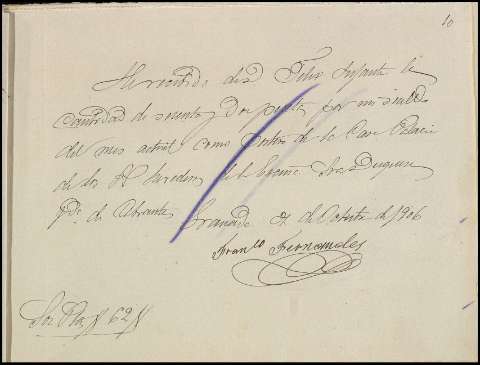 10
He recibido de D Felix Infante la
cantidad de sesenta y dos pesetas por mi sueldo
del mes actual como Portero de la Casa Palacio
de los H herederos de la Excma Sra Duquesa
de Abrantes Granada 31 de Octubre de 1906
Franco Fernandez
Son Ptas 62